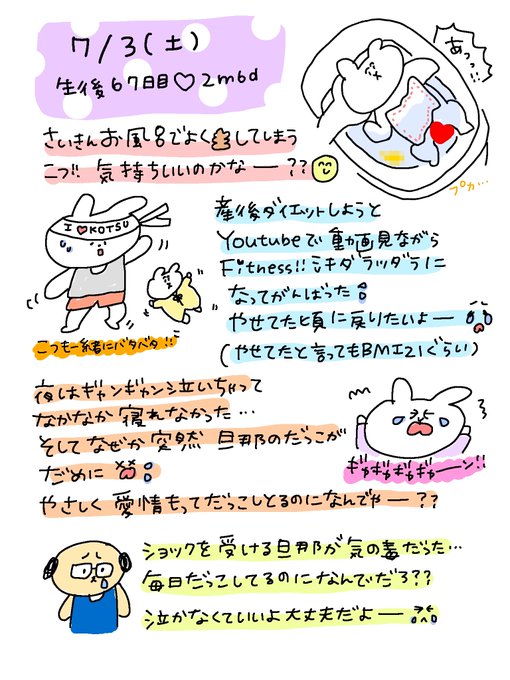 7/3(土)
生後67日目♡2m6d
あっ…!!
さいきんお風呂でよく💩してしまう
こつ!! 気持ちいいのかなー??
プカ…
I ♥ KOTSU
産後ダイエットしようと
Youtubeで動画見ながら
Fitness!! 汗ダラッダラに
なってがんばった
やせてた頃に戻りたいよー
(やせてたと言ってもBMI21ぐらい)
こつも一緒にバタバタ!!
夜はギャンギャン泣いちゃって
なかなか寝れなかった…
そしてなぜか突然 旦那のだっこが
だめに
ギャギャギャギャーン!!
やさしく愛情もってだっこしとるのになんでやー??
ショックを受ける旦那が気の毒だった…
毎日だっこしてるのになんでだろ??
泣かなくていいよ大丈夫だよー